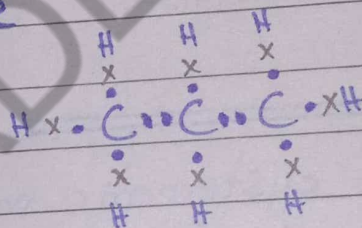 H H H
x x x
• • •
H x • C • • C • • C • x H
• • •
x x x
H H H